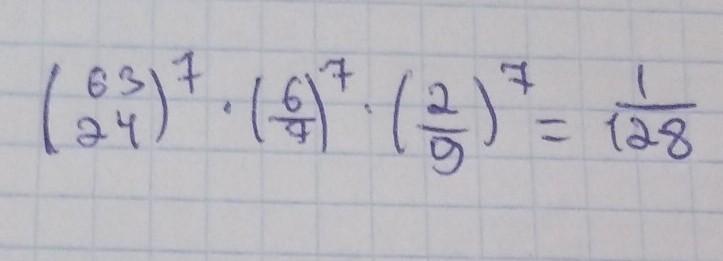 (63/24)^7 · (6/7)^7 · (2/9)^7 = 1/128